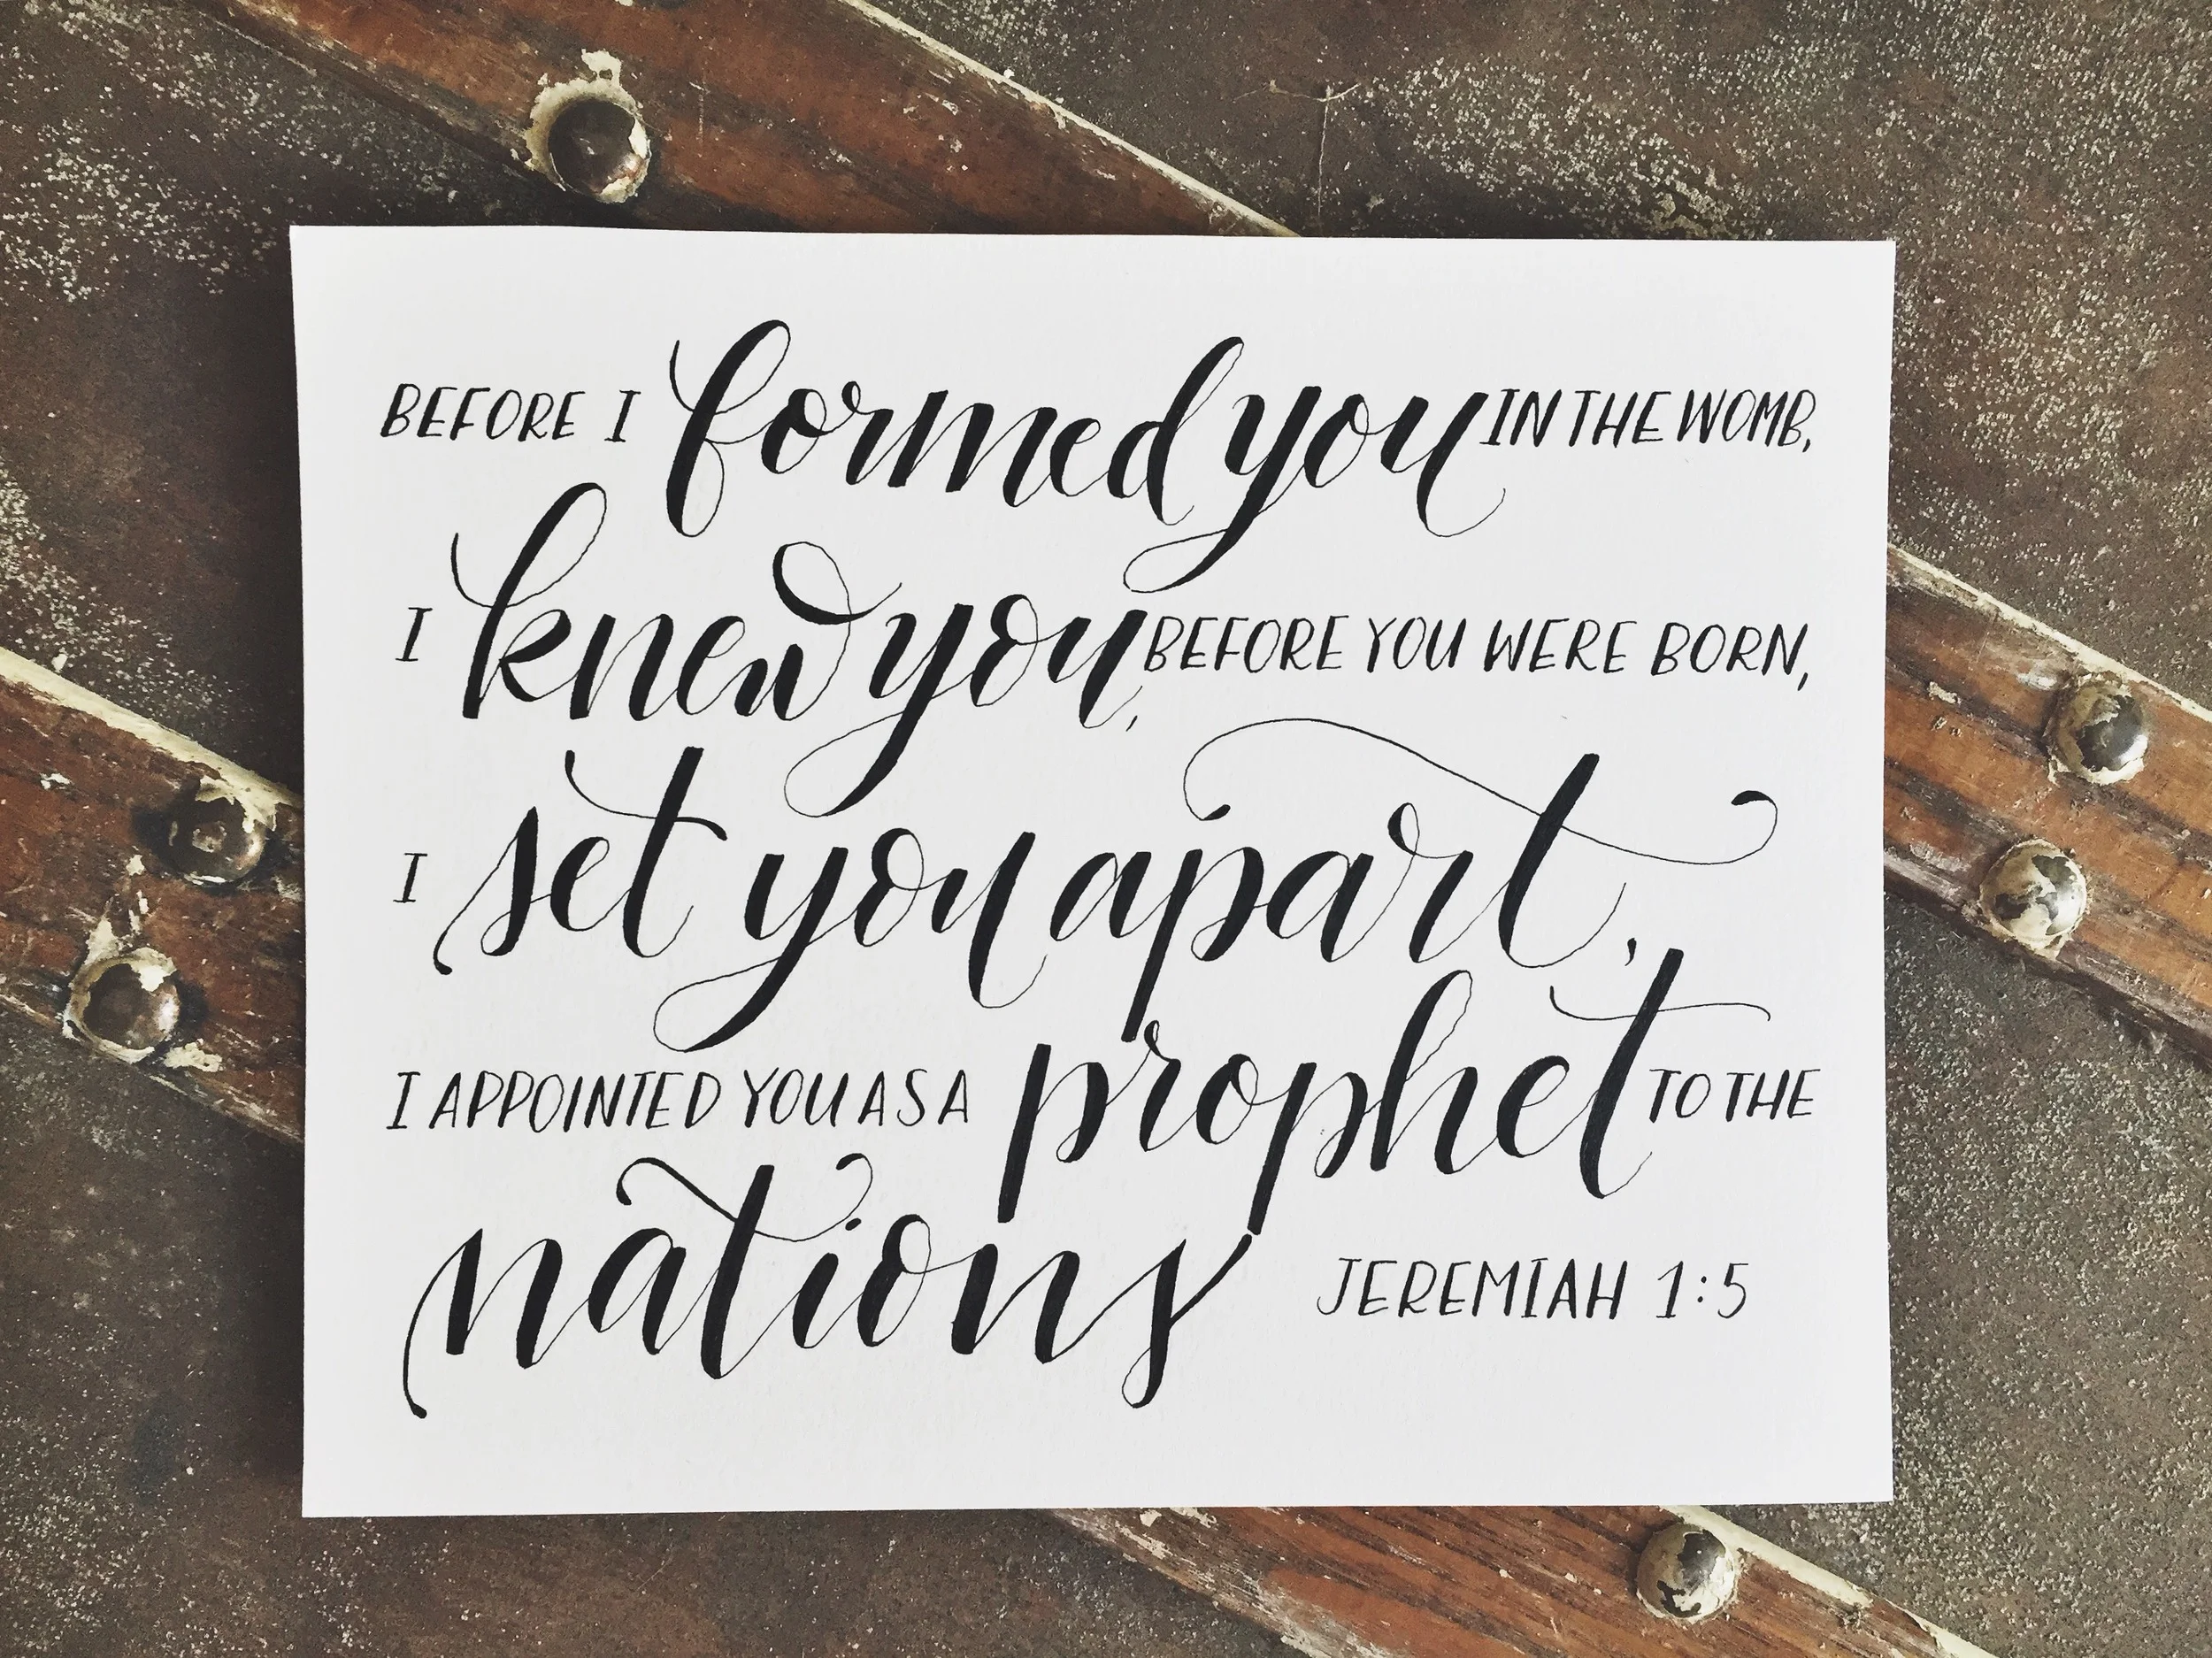 BEFORE I formed you IN THE WOMB,
I knew you, BEFORE YOU WERE BORN,
I set you apart,
I APPOINTED YOU AS A prophet TO THE
nations JEREMIAH 1:5